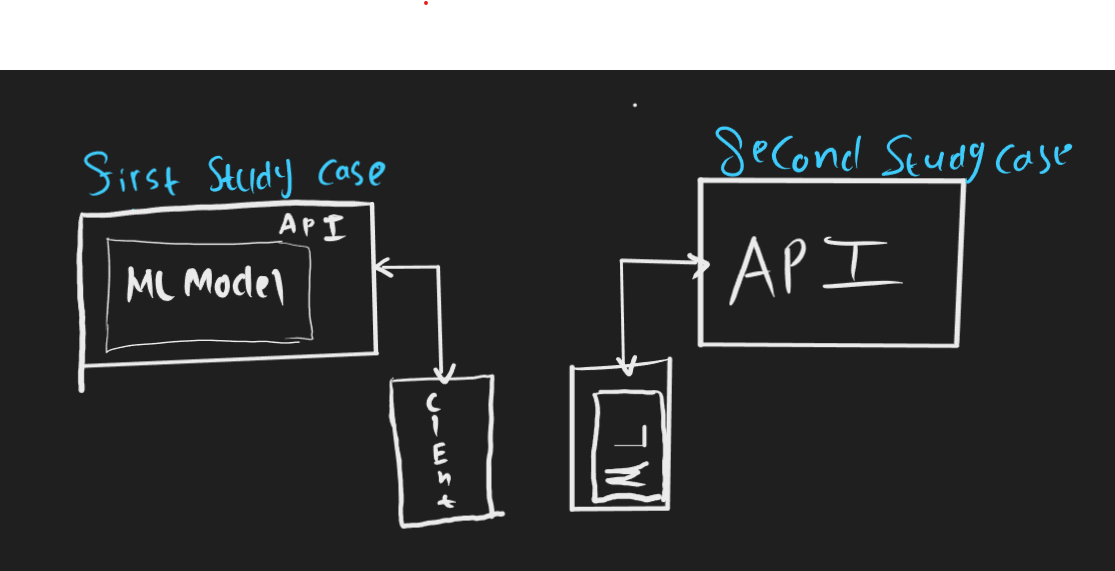 First Study Case
API
ML Model
Client
Second Study Case
API
ML